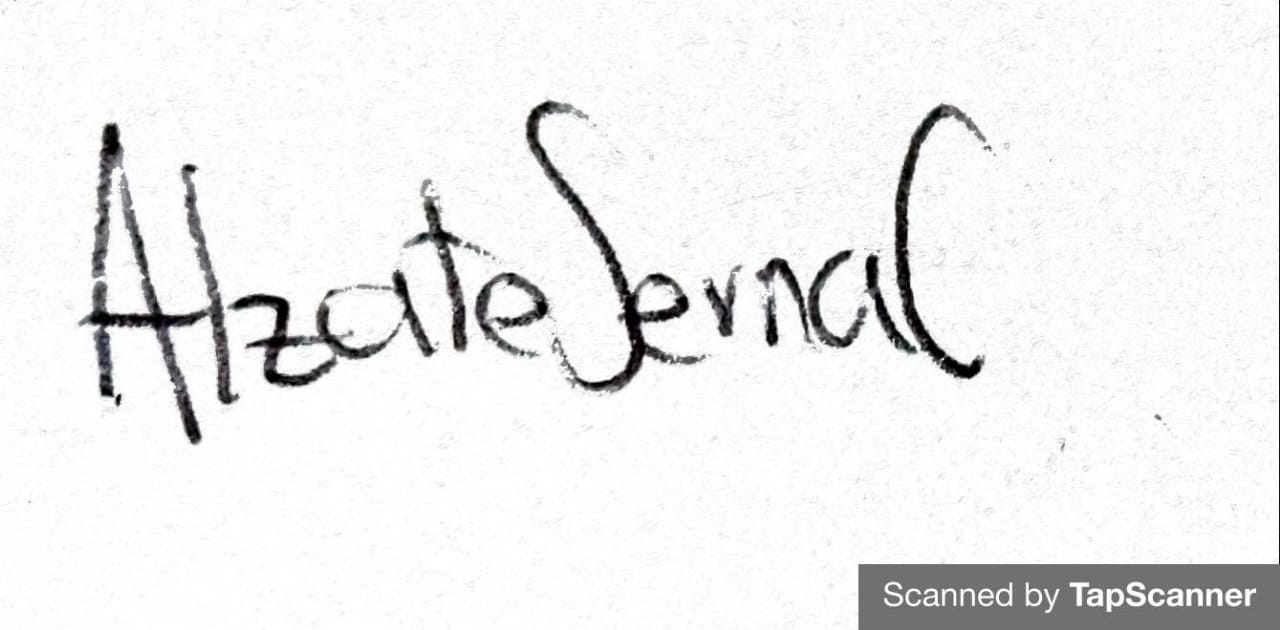 AlzateSernaC
Scanned by TapScanner